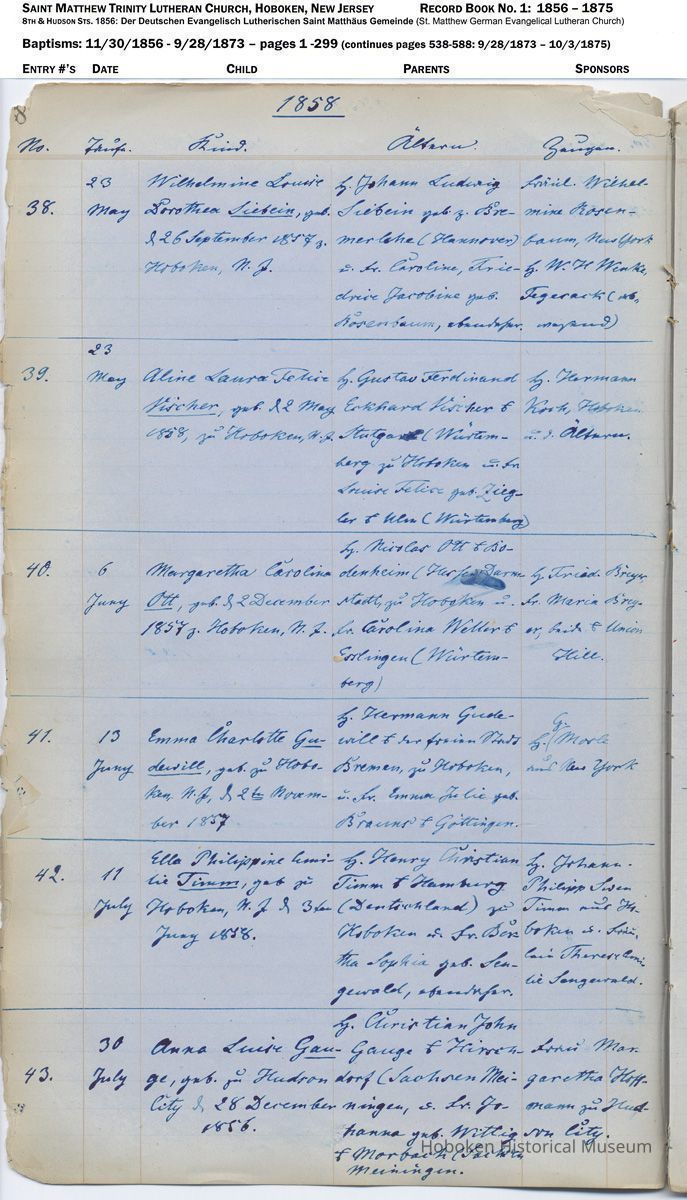 SAINT MATTHEW TRINITY LUTHERAN CHURCH, HOBOKEN, NEW JERSEY RECORD BOOK NO. 1: 1856 – 1875
8TH & HUDSON STS. 1856: Der Deutschen Evangelisch Lutherischen Saint Matthäus Gemeinde (St. Matthew German Evangelical Lutheran Church)
Baptisms: 11/30/1856 - 9/28/1873 – pages 1 -299 (continues pages 538-588: 9/28/1873 – 10/3/1875)
ENTRY #'S DATE CHILD PARENTS SPONSORS
8
1858
No. Taufe. Kind. Ältern. Zeugen.
38.
23
May
Wilhelmine Louise
Dorothea Siebein, geb.
d. 26 September 1857 z.
Hoboken, N. J.
H. Johann Ludwig
Siebein geb. z. Bre-
merlehe (Hannover)
u. Fr. Caroline, Frie-
drise Jacobine geb.
Rosenbaum, ebendaher.
Fräul. Wilhel-
mine Rosen-
baum, New York
H. W. H. Winke,
Fegesack (ab-
wesend)
39.
23
May
Aline Laura Felice
Vischer, geb. d. 2 May
1858, zu Hoboken, N. J.
H. Gustav Ferdinand
Eckhard Vischer v
Stutgart (Würtem-
berg zu Hoboken u. Fr.
Louise Felice geb. Zieg-
ler v Ulm (Würtemberg)
H. Hermann
Koch, Hoboken
u. d. Ältern.
40.
6
Juny
Margaretha Carolina
Ott, geb. d. 2 December
1857 z. Hoboken, N. J.
H. Nicolas Ott v Bo-
denheim (Hessen Darm-
stadt, zu Hoboken u.
Fr. Carolina Weller v
Esslingen (Würtem-
berg)
H. Fried. Breyer
Fr. Maria Brey-
er, beide v Union
Hill.
41.
13
Juny
Emma Charlotte Gu-
dewill, geb. zu Hobo-
ken, N. J., d. 2ten Novem-
ber 1857
H. Hermann Gude-
will v der freien Stadt
Bremen, zu Hoboken,
u. Fr. Emma Julie geb.
Brauns v Göttingen.
G.
H. Mosle
aus New York
42.
11
July
Ella Philippine Emi-
lie Timm, geb zu
Hoboken, N. J. d. 3ten
Juny 1858.
H. Henry Christian
Timm v Hamburg
(Deutschland) zu
Hoboken u. Fr. Ber-
tha Sophia geb. Sen-
gewald, ebendaher.
H. Johann
Philipp Swen
Timm aus Ho-
boken u. Fräu-
lein Therese Emi-
lie Sengewald.
43.
30
July
Anna Luise Gau-
ge, geb. zu Hudson
City d. 28 December
1856.
H. Christian John
Gauge v Hirsch-
dorf (Sachsen Mei-
ningen, u. Fr. Jo-
hanna geb. Wittig
v Morbach (Sachsen
Meiningen.
Frau Mar-
garetha Hoff-
mann zu Hud-
son City.
Hoboken Historical Museum